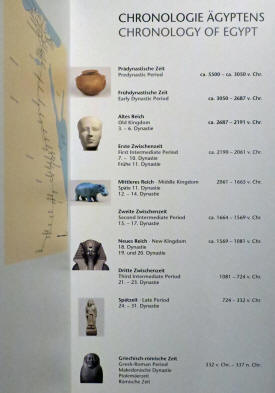 CHRONOLOGIE ÄGYPTENS
CHRONOLOGY OF EGYPT
Prädynastische Zeit
Predynastic Period
ca. 5500 – ca. 3050 v. Chr.
Frühdynastische Zeit
Early Dynastic Period
ca. 3050 – 2687 v. Chr.
Altes Reich
Old Kingdom
3. – 6. Dynastie
ca. 2687 – 2191 v. Chr.
Erste Zwischenzeit
First Intermediate Period
7. – 10. Dynastie
Frühe 11. Dynastie
ca. 2190 – 2061 v. Chr.
Mittleres Reich · Middle Kingdom
Späte 11. Dynastie
12. – 14. Dynastie
2061 – 1665 v. Chr.
Zweite Zwischenzeit
Second Intermediate Period
15. – 17. Dynastie
ca. 1664 – 1569 v. Chr.
Neues Reich · New Kingdom
18. Dynastie
19. und 20. Dynastie
ca. 1569 – 1081 v. Chr.
Dritte Zwischenzeit
Third Intermediate Period
21. – 23. Dynastie
1081 – 724 v. Chr.
Spätzeit · Late Period
24. – 31. Dynastie
724 – 332 v. Chr.
Griechisch-römische Zeit
Greek-Roman Period
Makedonische Dynastie
Ptolemäerzeit
Römische Zeit
332 v. Chr. – 337 n. Chr.